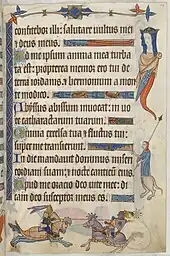 confitebor illi: salutare vultus mei
et deus meus.
Ad me ipsum anima mea turba
ta est: propterea memor ero tui de
terra iordanis et hermoniim a mon
te modico.
Abyssus abyssum invocat: in vo
ce catharactarum tuarum.
Omnia excelsa tua et fluctus tui:
super me transierunt.
In die mandavit dominus miseri
cordiam suam: et nocte canticum eius.
Apud me oracio deo vite mee: di
cam deo susceptor meus es.